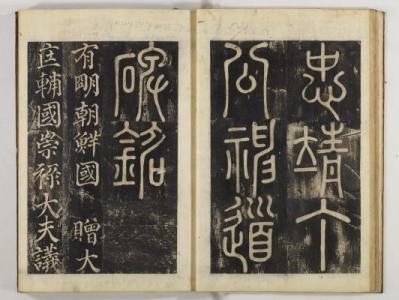 忠靖丁
公神道
碑銘
有明朝鮮國　贈大
匡輔國崇祿大夫議